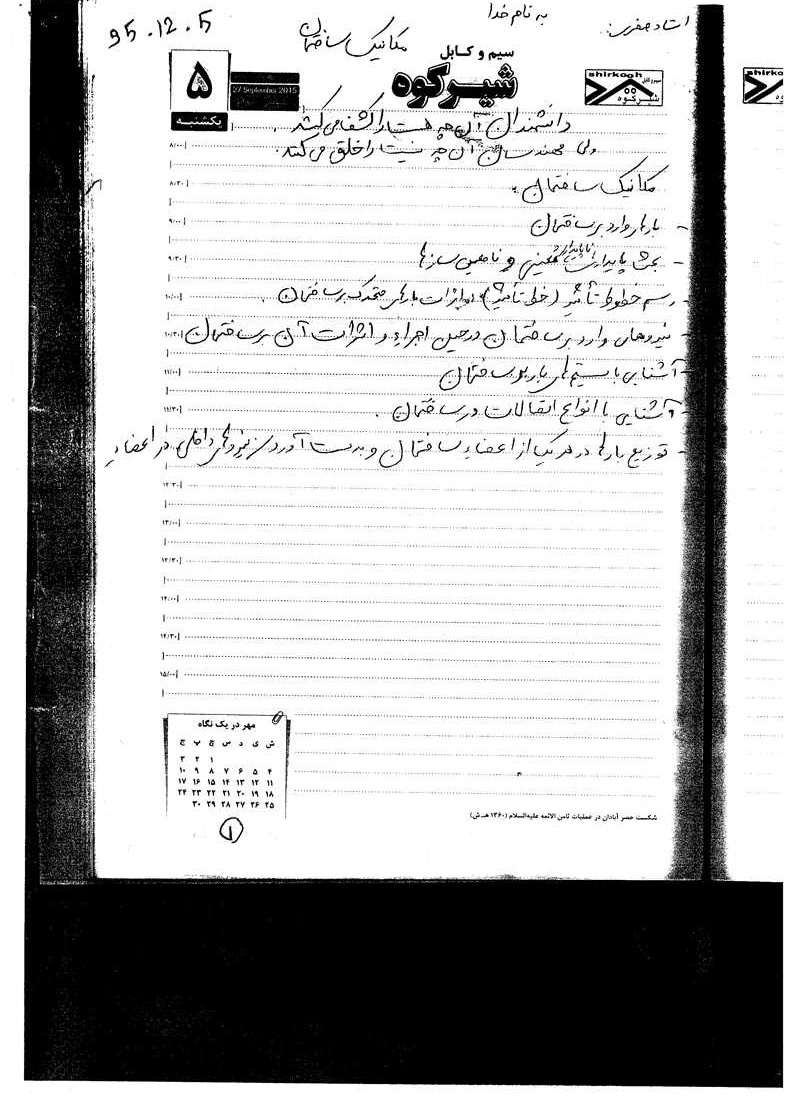 به نام خدا
استاد جعفری:
95.12.5
مکانیک ساختمان
سیم و کابل
شیرکوه
shirkooh
سیم و کابل
شیرکوه
۵
27 September 2015
یکشنبه
دانشمندان آن چه هست را کشف می‌کنند.
ولی مهندسان آن چه نیست را خلق می‌کنند.
مکانیک ساختمان:
- بارهای وارد بر ساختمان
- بحث پایداری ناپایداری معینی و نامعینی سازه‌ها
- رسم خطوط تأثیر (خط تأثیر) و اثرات بارهای متحرک بر ساختمان.
- نیروهای وارد بر ساختمان در حین اجراء و اثرات آن بر ساختمان
- آشنایی با سیستم‌های باربر ساختمان
- آشنایی با انواع اتصالات در ساختمان.
- توزیع بارها در هر یک از اعضاء ساختمان و بدست آوردن نیروهای داخلی در اعضاء
۸/۰۰
۸/۳۰
۹/۰۰
۹/۳۰
۱۰/۰۰
۱۰/۳۰
۱۱/۰۰
۱۱/۳۰
۱۲/۳۰
۱۳/۰۰
۱۳/۳۰
۱۴/۰۰
۱۴/۳۰
۱۵/۰۰
مهر در یک نگاه
ش ی د س چ پ ج
۱ ۲ ۳
۴ ۵ ۶ ۷ ۸ ۹ ۱۰
۱۱ ۱۲ ۱۳ ۱۴ ۱۵ ۱۶ ۱۷
۱۸ ۱۹ ۲۰ ۲۱ ۲۲ ۲۳ ۲۴
۲۵ ۲۶ ۲۷ ۲۸ ۲۹ ۳۰
شکست حصر آبادان در عملیات ثامن الائمه علیه‌السلام (۱۳۶۰ هـ.ش)
۱